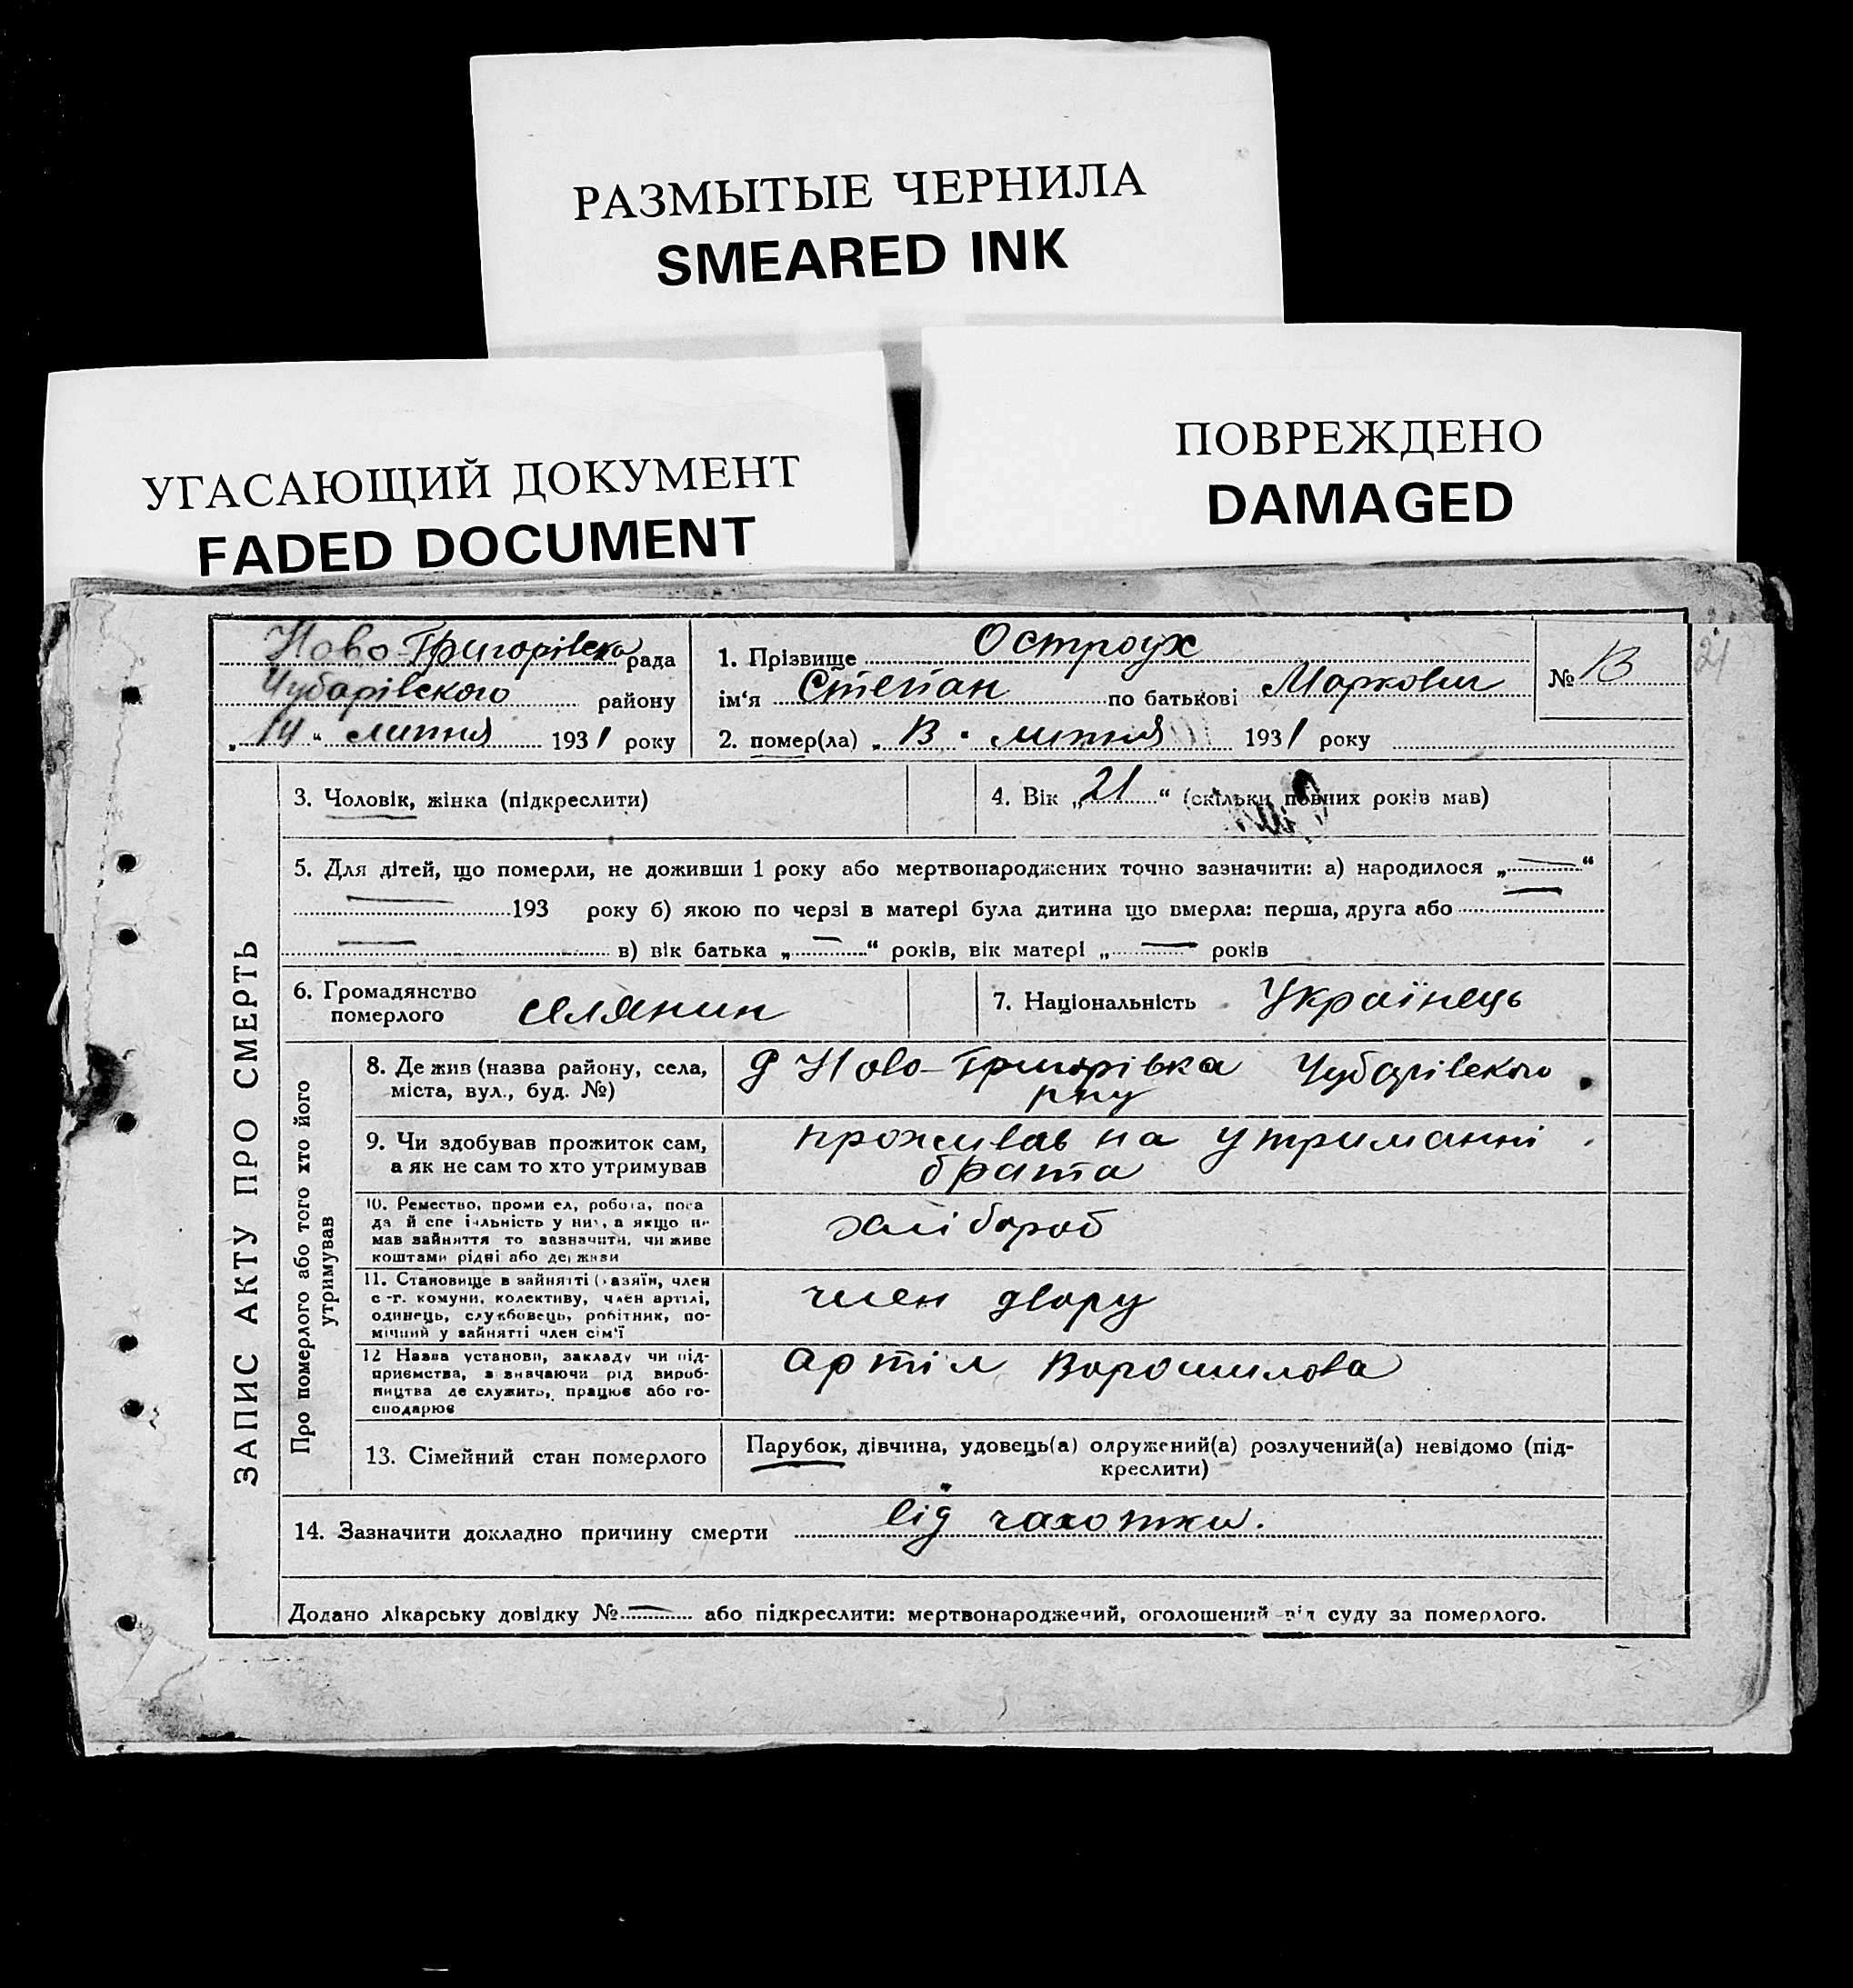 РАЗМЫТЫЕ ЧЕРНИЛА
SMEARED INK
УГАСАЮЩИЙ ДОКУМЕНТ
FADED DOCUMENT
ПОВРЕЖДЕНО
DAMAGED
Ново-Григорівська рада
Чубарівського району
„14“ липня 1931 року
1. Прізвище Остроух
ім‘я Степан по батькові Маркович
2. помер(ла) „13“ липня 1931 року
№ 13
21
ЗАПИС АКТУ ПРО СМЕРТЬ
3. Чоловік, жінка (підкреслити)
4. Вік „21“ (скільки повних років мав)
5. Для дітей, що померли, не доживши 1 року або мертвонароджених точно зазначити: а) народилося „—“
— 193 року б) якою по черзі в матері була дитина що вмерла: перша, друга або —
— в) вік батька „—“ років, вік матері „—“ років
6. Громадянство
померлого
селянин
7. Національність Українець
Про померлого або того хто його
утримував
8. Де жив (назва району, села,
міста, вул., буд. №)
Ново-Григорівка Чубарівського
р-ну
9. Чи здобував прожиток сам,
а як не сам то хто утримував
проживав на утриманні
брата
10. Ремество, промисел, робота, поса
да й спеціяльність у них, а якщо не
мав зайняття то зазначити, чи живе
коштами рідні або держави
хлібороб
11. Становище в зайнятті (хазяїн, член
с-г. комуни, колективу, член артілі,
одинець, службовець, робітник, по-
мічний у зайнятті член сім'ї
член двору
12 Назва установи, закладу чи під-
приємства, зазначаючи рід вироб-
ництва де служить, працює або го-
сподарює
артіл Ворошилова
13. Сімейний стан померлого
Парубок, дівчина, удовець(а) одружений(а) розлучений(а) невідомо (під-
креслити)
14. Зазначити докладно причину смерти від чахотки.
Додано лікарську довідку №— або підкреслити: мертвонароджений, оголошений від суду за померлого.